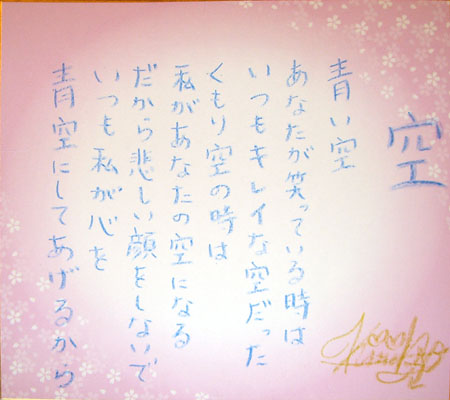 空
青い空
あなたが笑っている時は
いつもキレイな空だった
くもり空の時は
私があなたの空になる
だから悲しい顔をしないで
いつも私が心を
青空にしてあげるから